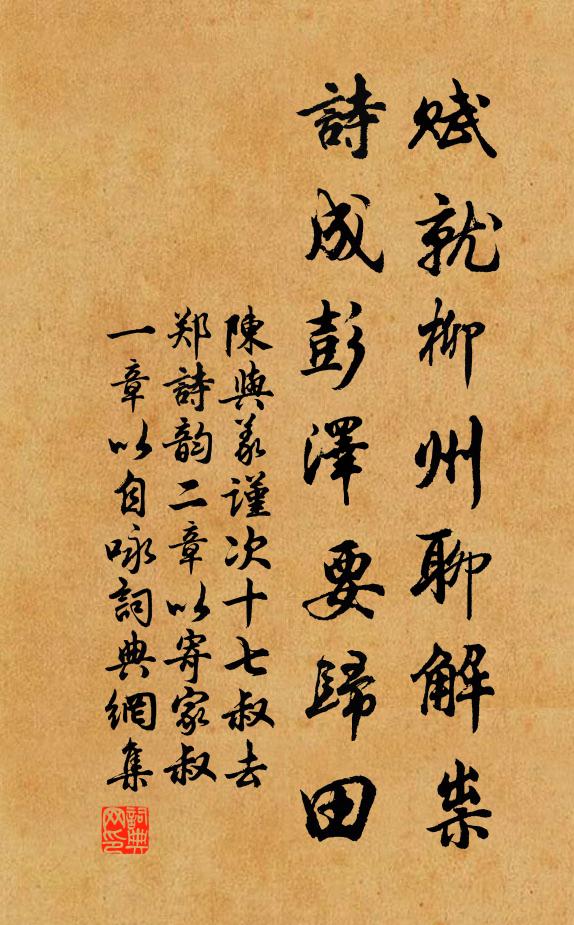 賦就柳州聊解祟
詩成彭澤要歸田
陳與義謹次十七叔去
郑詩韵二章以寄家叔
一章以自咏詞典網集
詞典
网印